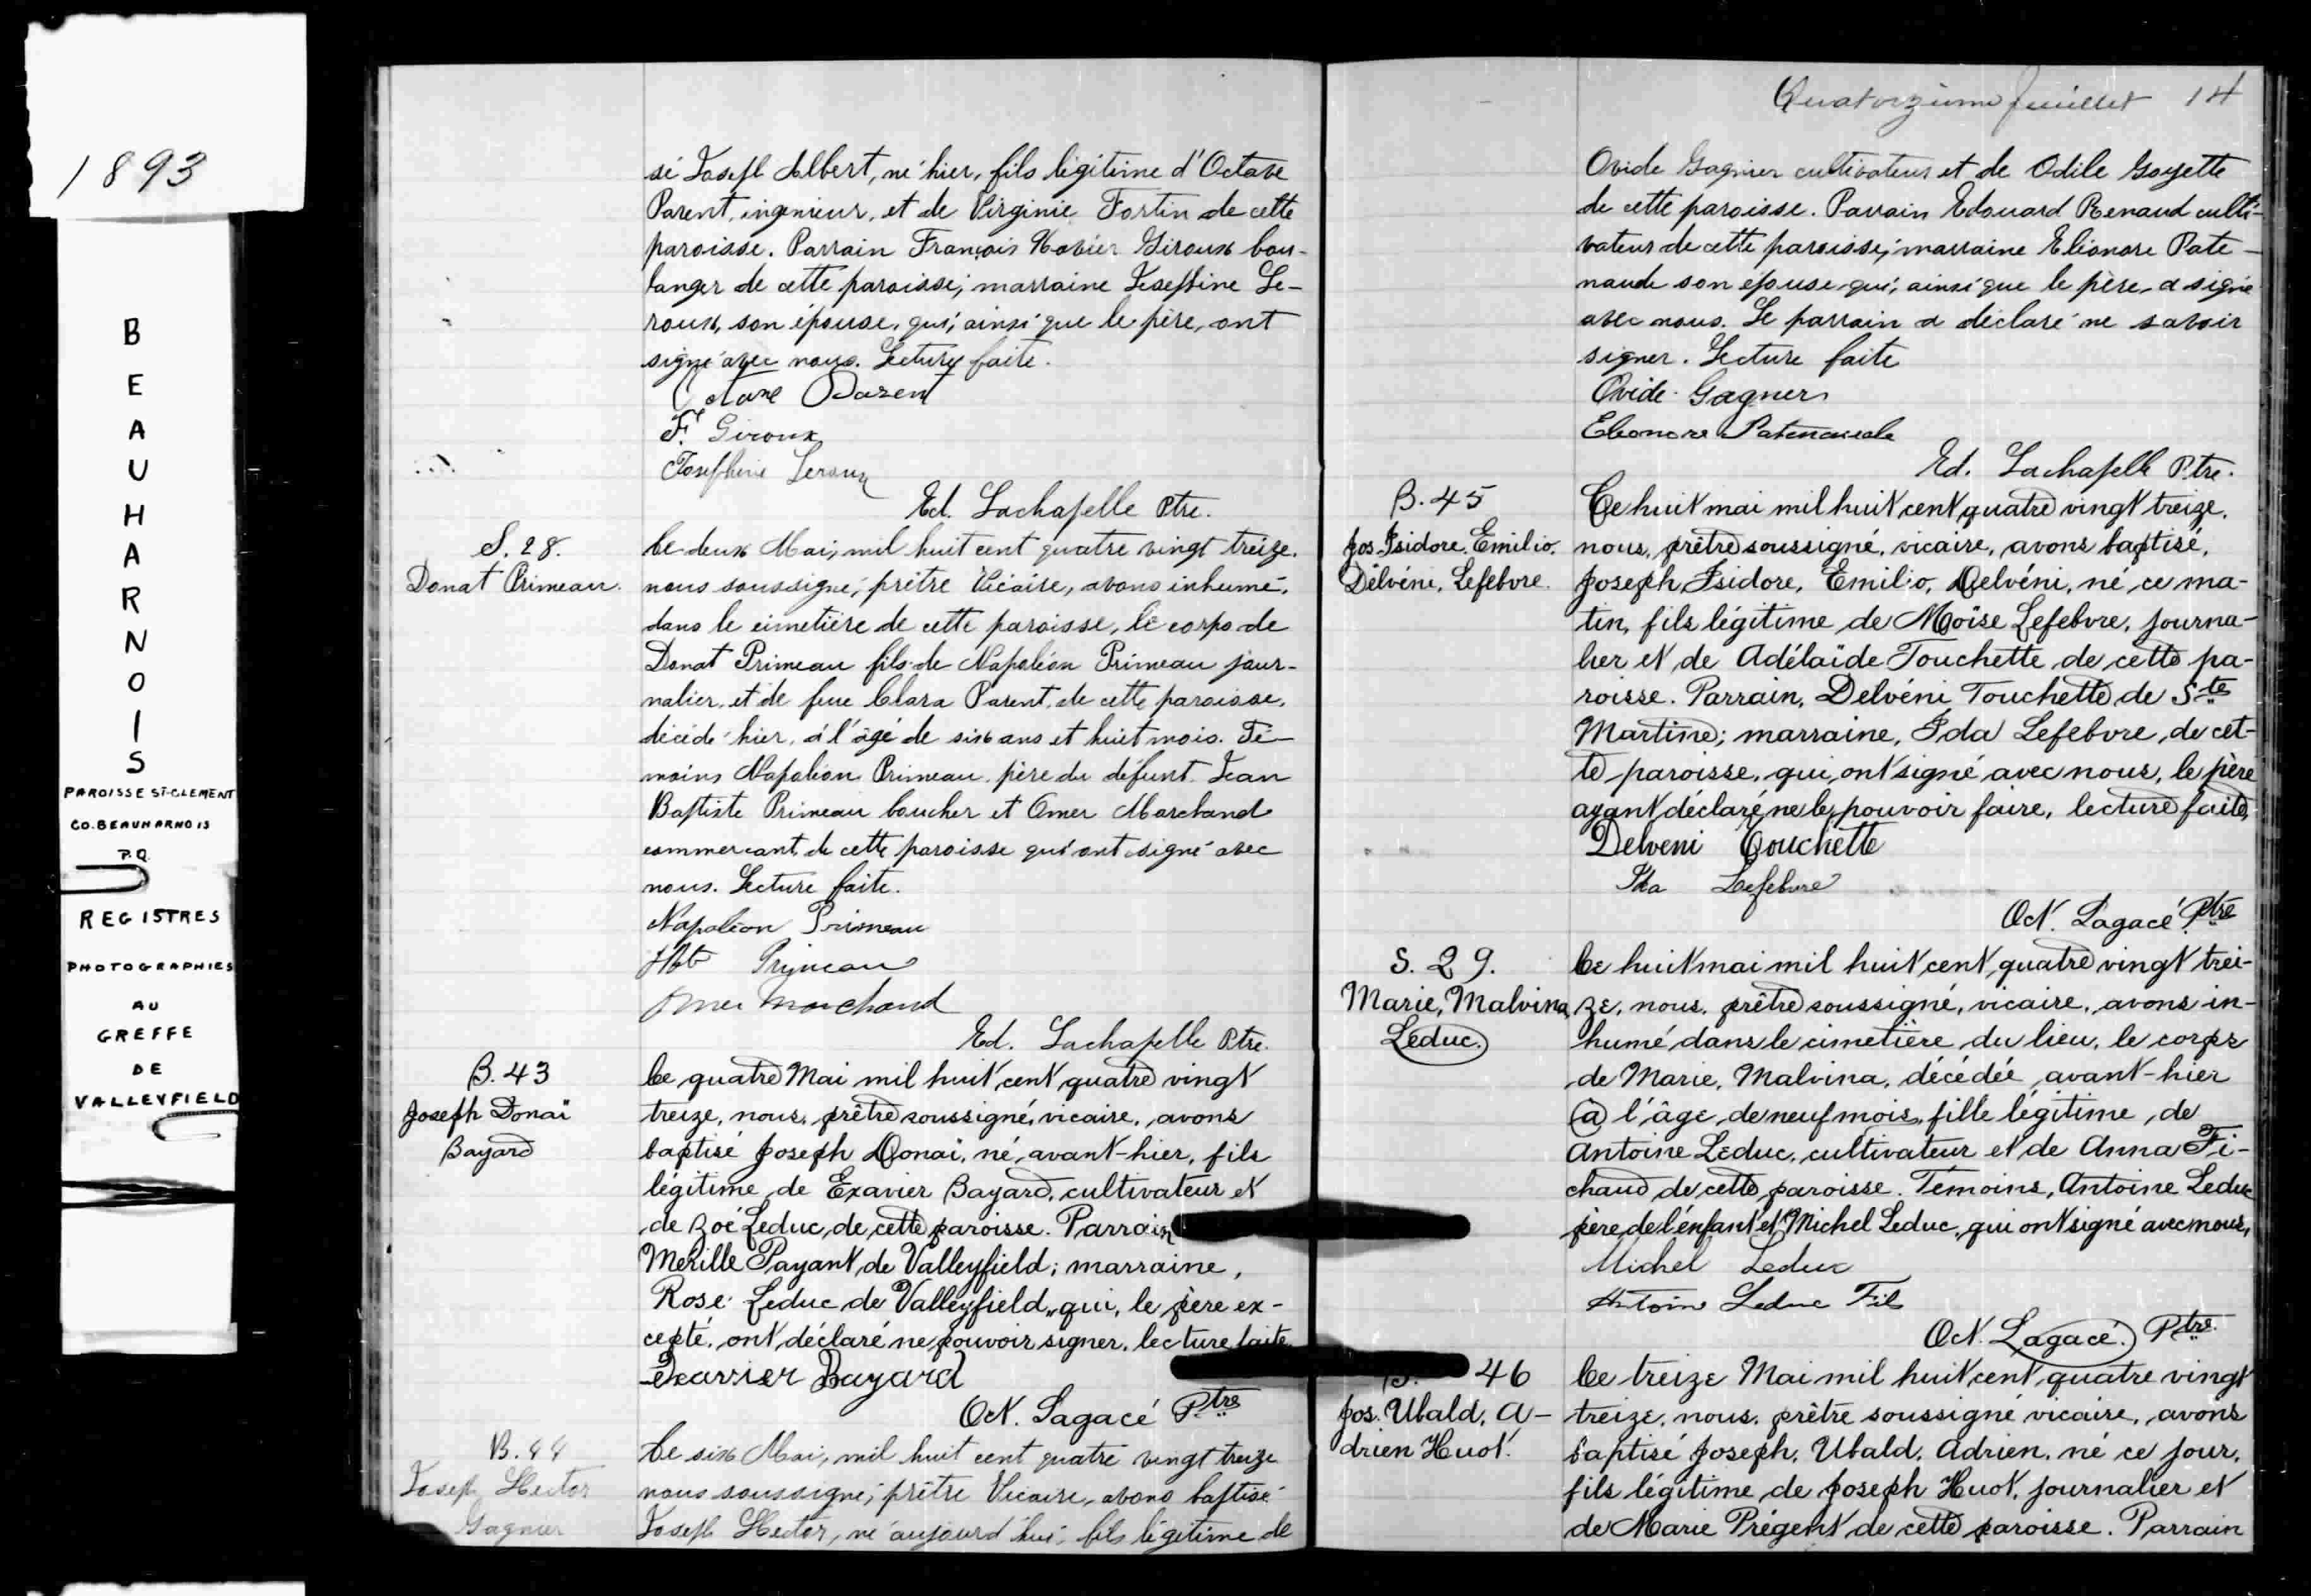 1893
BEAUHARNOIS
PAROISSE ST-CLEMENT
CO. BEAUHARNOIS
P.Q.
REGISTRES
PHOTOGRAPHIES
AU
GREFFE
DE
VALLEYFIELD
sé Joseph Albert, né hier, fils légitime d'Octave
Parent, ingenieur, et de Virginie Fortin de cette
paroisse. Parrain François Xavier Giroux bou-
langer de cette paroisse; marraine Josephine Le-
roux, son épouse, qui, ainsi que le père, ont
signé avec nous. Lecture faite.
Octave Parent
F. Giroux
Josephine Leroux
Ed. Lachapelle Ptre.
S. 28.
Donat Primeau.
Ce deux Mai, mil huit cent quatre vingt treize.
nous soussigné, prêtre Vicaire, avons inhumé,
dans le cimetière de cette paroisse, le corps de
Donat Primeau fils de Napoléon Primeau jour-
nalier, et de feue Clara Parent, de cette paroisse,
décédé hier, à l'âgé de six ans et huit mois. Té-
moins Napoléon Primeau père du défunt. Jean
Baptiste Primeau boucher et Omer Marchand
commercant de cette paroisse qui ont signé avec
nous. Lecture faite.
Napoléon Primeau
JBte Primeau
Omer Marchand
Ed. Lachapelle Ptre.
B. 43
Joseph Donaï
Bayard
Ce quatre Mai mil huit cent quatre vingt
treize, nous, prêtre soussigné, vicaire, avons
baptisé Joseph Donaï, né, avant-hier, fils
légitime de Exavier Bayard, cultivateur et
de Zoé Leduc, de cette paroisse. Parrain
Merille Payant, de Valleyfield; marraine,
Rose Leduc de Valleyfield, qui, le père ex-
cepté, ont déclaré ne pouvoir signer, lecture faite.
Exavier Bayard
Oct. Lagacé Ptre
B. 44
Joseph Hector
Gagnier
Ce six Mai, mil huit cent quatre vingt treize
nous soussigné, prêtre Vicaire, avons baptisé
Joseph Hector, né aujourd'hui, fils légitime de
Quatorzième feuillet 14
Ovide Gagnier cultivateur et de Odile Goyette
de cette paroisse. Parrain Edouard Renaud culti-
vateur de cette paroisse; marraine Eléonore Pate-
naude son épouse qui, ainsi que le père, a signé
avec nous. Le parrain a déclaré ne savoir
signer. Lecture faite
Ovide Gagner
Eleonore Patenaude
Ed. Lachapelle Ptre.
B. 45
Jos. Isidore, Emilio,
Délvéni, Lefebvre.
Ce huit mai mil huit cent quatre vingt treize,
nous, prêtre soussigné, vicaire, avons baptisé,
Joseph Isidore, Emilio, Delvéni, né ce ma-
tin, fils légitime de Moïse Lefebvre, journa-
lier et de Adélaïde Touchette de cette pa-
roisse. Parrain, Delvéni Touchette de Ste
Martine; marraine, Ida Lefebvre, de cet-
te paroisse, qui, ont signé avec nous, le père
ayant déclaré ne le pouvoir faire, lecture faite,
Delveni Touchette
Ida Lefebvre
Oct. Lagacé Ptre
S. 29.
Marie, Malvina,
Leduc.
Ce huit mai mil huit cent quatre vingt trei-
ze, nous, prêtre soussigné, vicaire, avons in-
humé dans le cimetière du lieu, le corps
de Marie, Malvina, décédée avant-hier
à l'âge de neuf mois, fille légitime de
Antoine Leduc, cultivateur et de Anna Fi-
chaud de cette paroisse. Témoins, Antoine Leduc
père de l'enfant et Michel Leduc, qui ont signé avec nous,
Michel Leduc
Antoine Leduc Fils
Oct. Lagacé. Ptre
B. 46
Jos. Ubald, A-
drien Huot.
Ce treize Mai mil huit cent quatre vingt
treize, nous, prêtre soussigné vicaire, avons
baptisé Joseph, Ubald, Adrien, né ce jour,
fils légitime de Joseph Huot, journalier et
de Marie Prégent de cette paroisse. Parrain